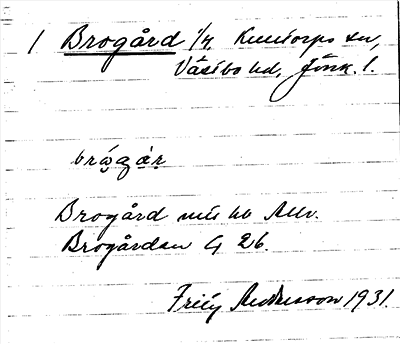 1 Brogård 1/4 Kulltorps sn,
Västbo hd, Jönk. l.
brǫ́gár
Brogård
Brogården G 26.
Frity Andersson 1931.